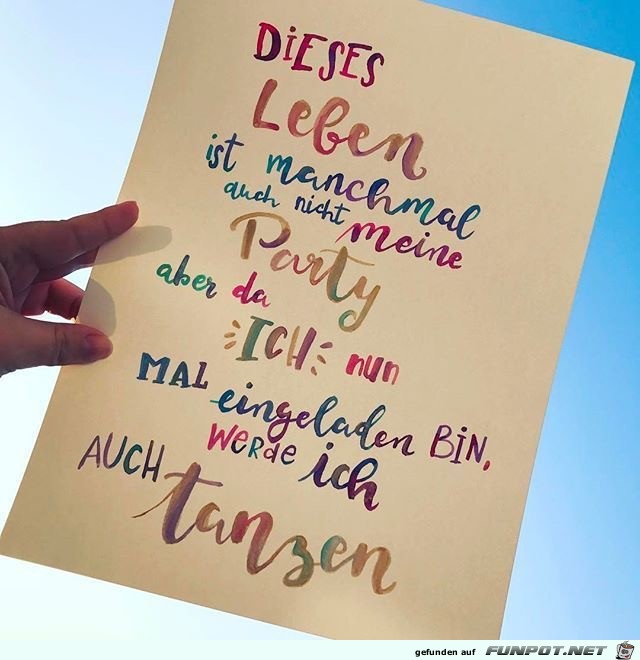 DiESES
Leben
ist manchmal
auch nicht meine
Party
aber da
ICH nun
MAL eingeladen BiN,
WERde ich
AUCH tanzen
gefunden auf FUNPOT.NET